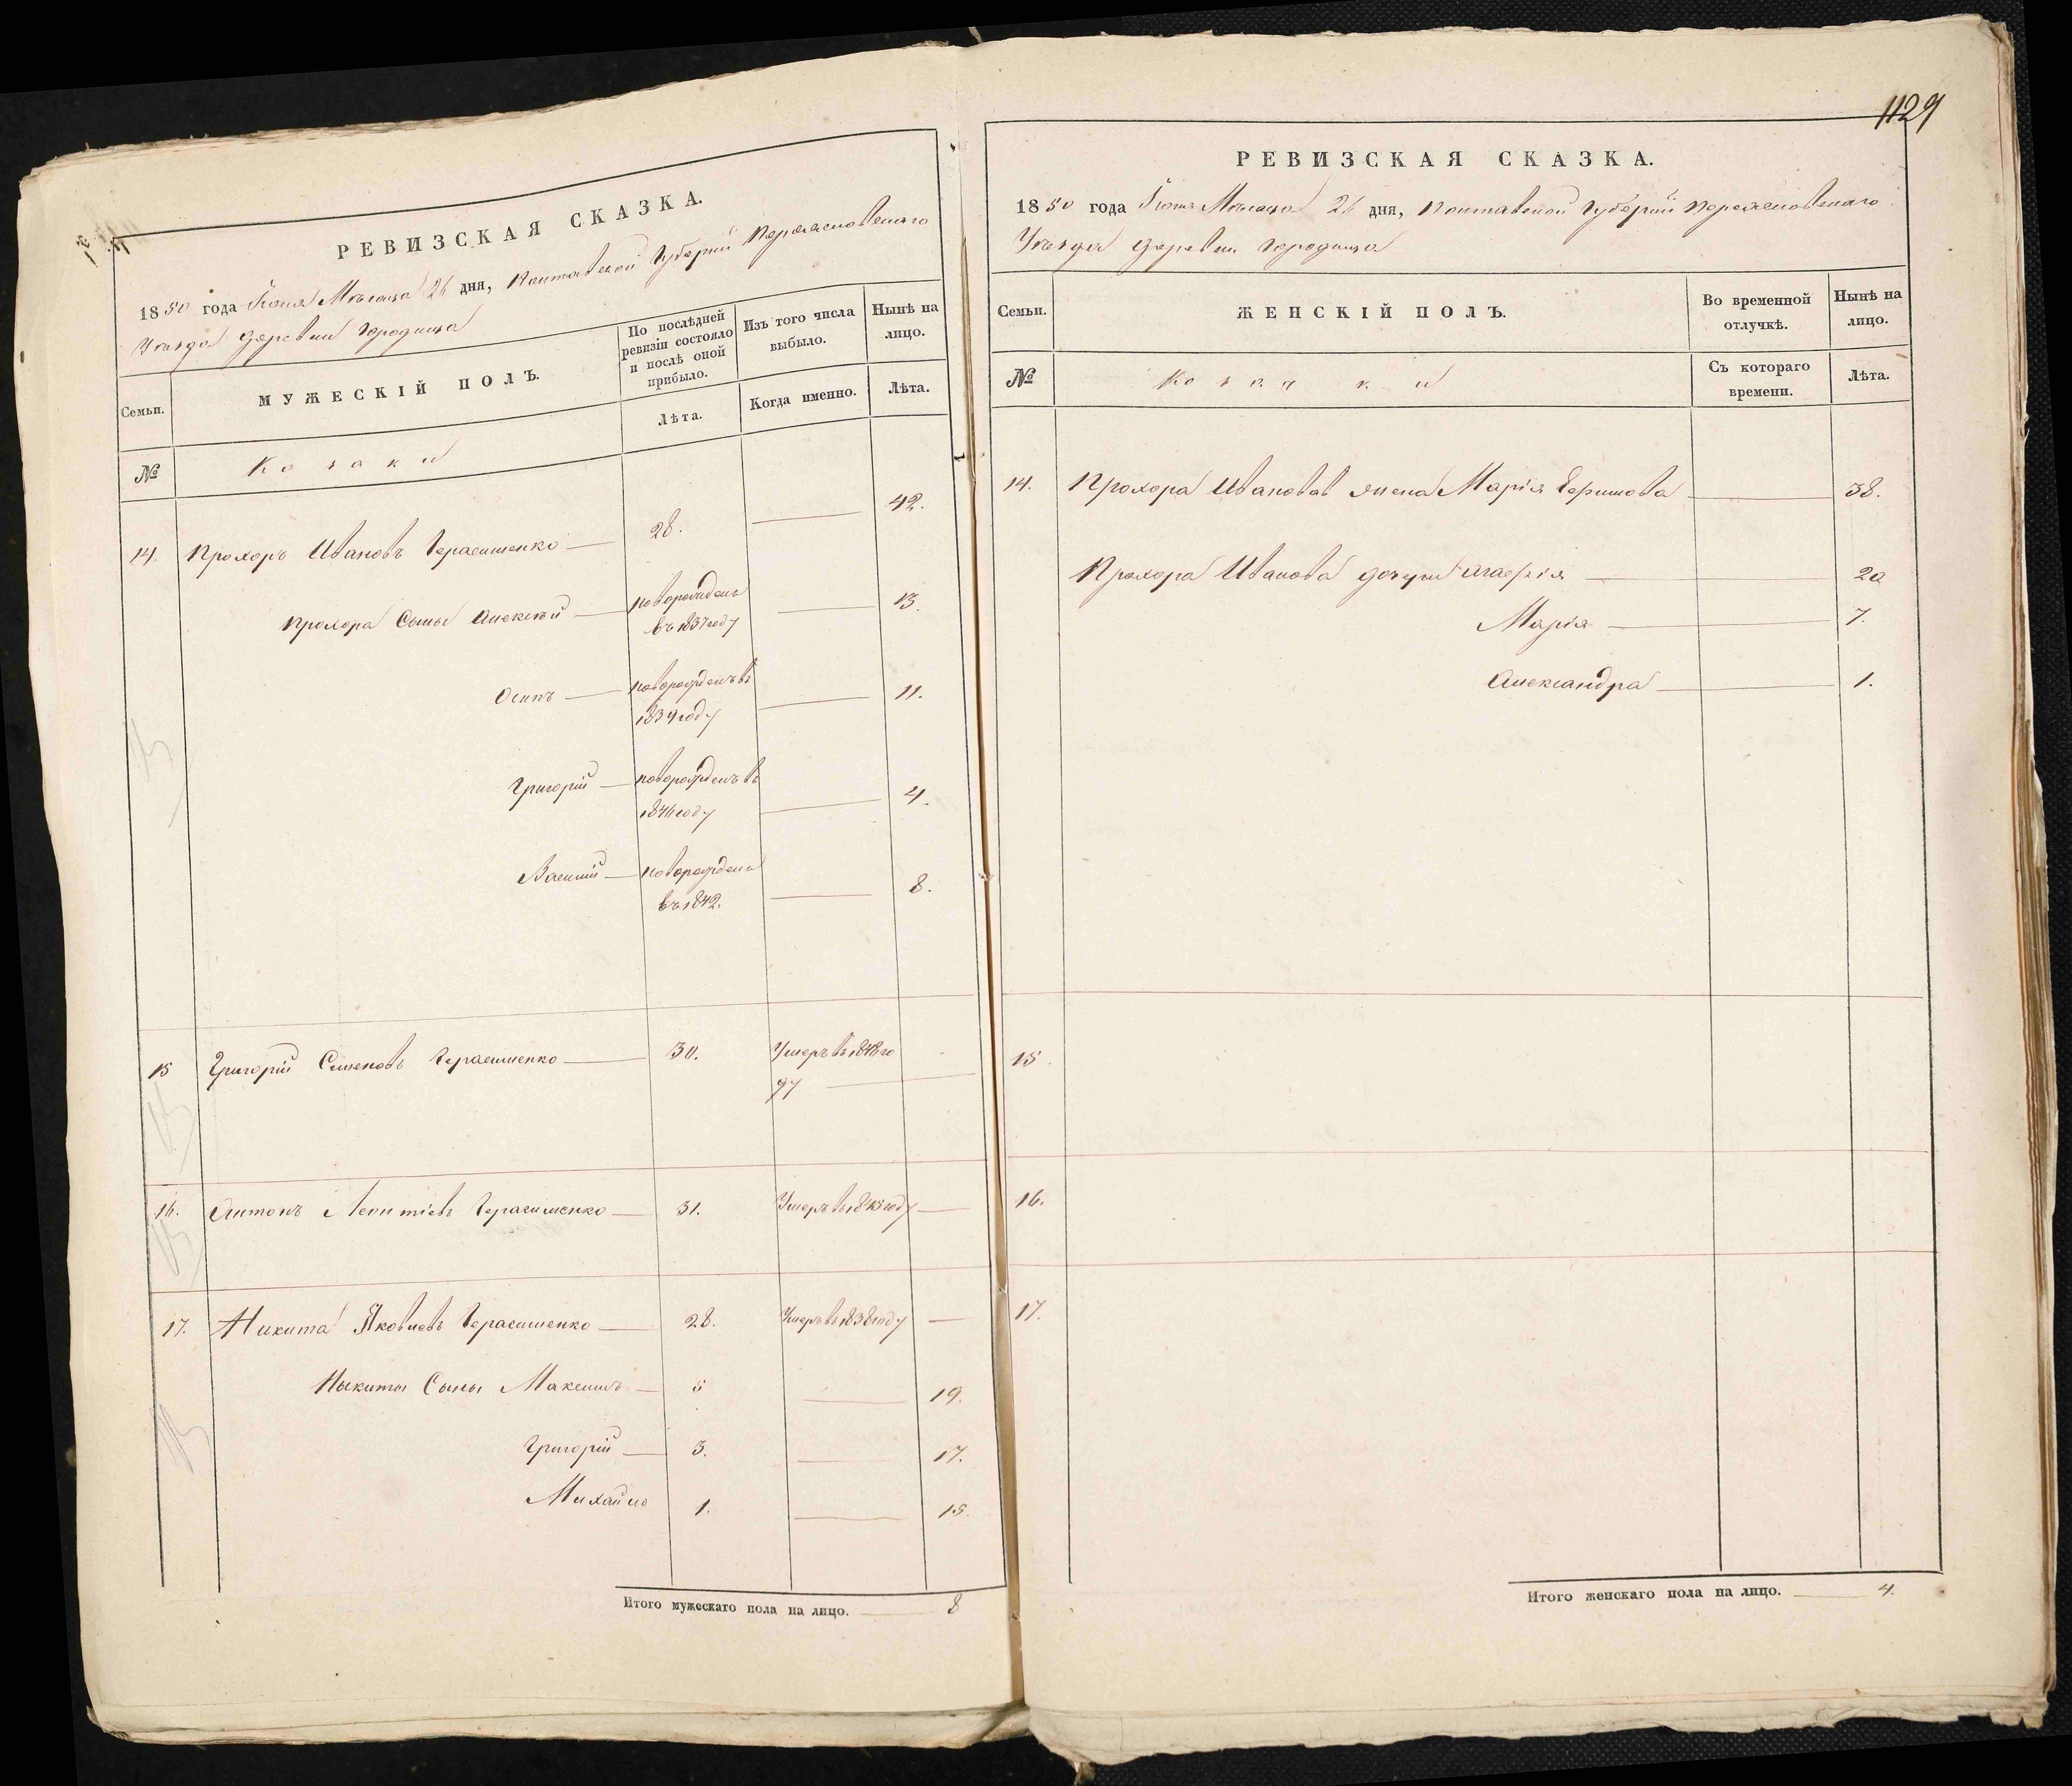 РЕВИЗСКАЯ СКАЗКА.
1850 года Іюня Мѣсяца 26 дня, Полтавской Губерніи Переясловскаго
Уѣзда деревни Городища
Семьи.
МУЖЕСКІЙ ПОЛЪ.
По послѣдней ревизіи состояло и послѣ оной прибыло.
Изъ того числа выбыло.
Нынѣ на лицо.
№
Козаки
Лѣта.
Когда именно.
Лѣта.
14. Прохоръ Ивановъ Герасименко 28. 42.
Прохора Сыны Алексѣй новорожденъ въ 1837 году 13.
Осипъ новорожденъ въ 1839 году 11.
Григорій новорожденъ въ 1846 году 4.
Василій новорожденъ въ 1842. 8.
15 Григорій Семеновъ Герасименко 30. Умеръ въ 1848 году
16. Антонъ Леонтіевъ Герасименко 31. Умеръ въ 1843 году
17. Никита Яковлевъ Герасименко 28. Умеръ въ 1838 году
Никиты Сыны Максимъ 5 19.
Григорій 3. 17.
Михайло 1. 15.
Итого мужескаго пола на лицо. 8
1129
РЕВИЗСКАЯ СКАЗКА.
1850 года Іюня Мѣсяца 26 дня, Полтавской Губерніи Переясловскаго
Уѣзда деревни Городища
Семьи.
ЖЕНСКІЙ ПОЛЪ.
Во временной отлучкѣ.
Нынѣ на лицо.
№
Козачки
Съ котораго времени.
Лѣта.
14. Прохора Иванова жена Марія 38.
Прохора Иванова дочери Агафія 20
Марія 7.
Александра 1.
15.
16.
17.
Итого женскаго пола на лицо. 4.